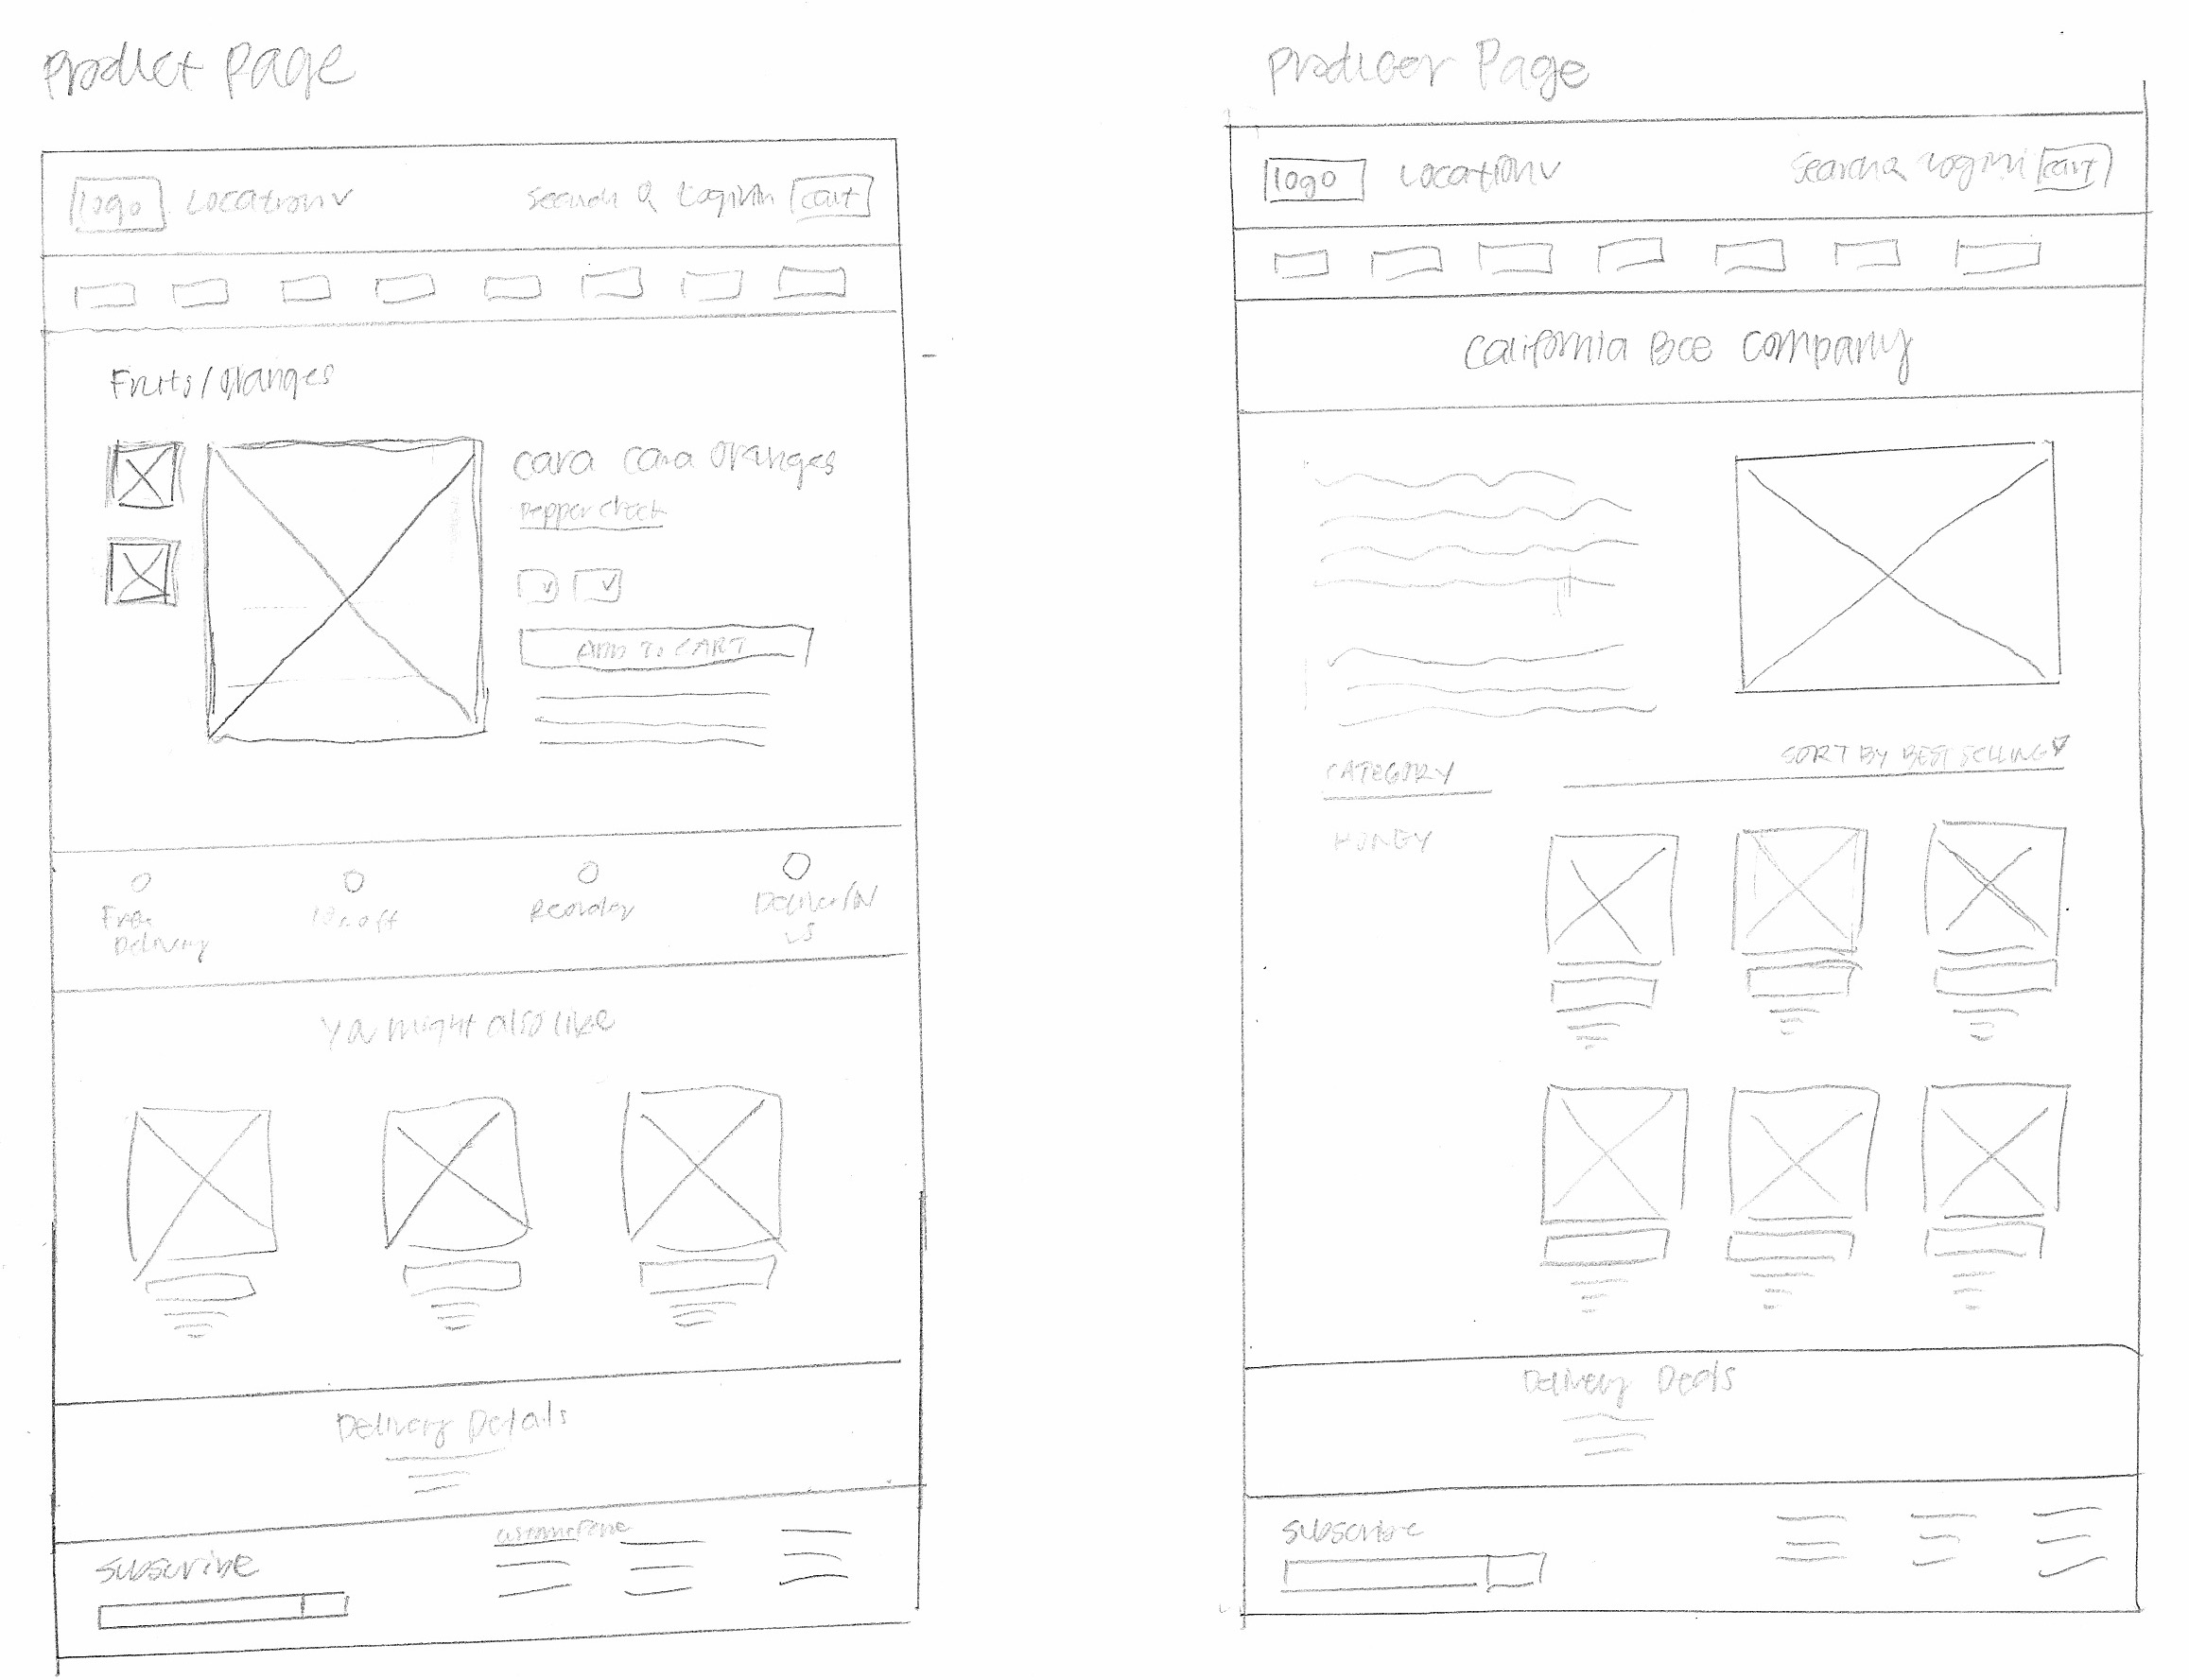 Product Page
logo Location Search Login cart
Fruits/Oranges
Cara Cara Oranges
ADD TO CART
Free
Delivery
Reorder
You might also like
Delivery Details
Subscribe
Producer Page
logo Location Search Login cart
California Bee Company
SORT BY BEST SELLING
CATEGORY
HONEY
Delivery Deals
Subscribe